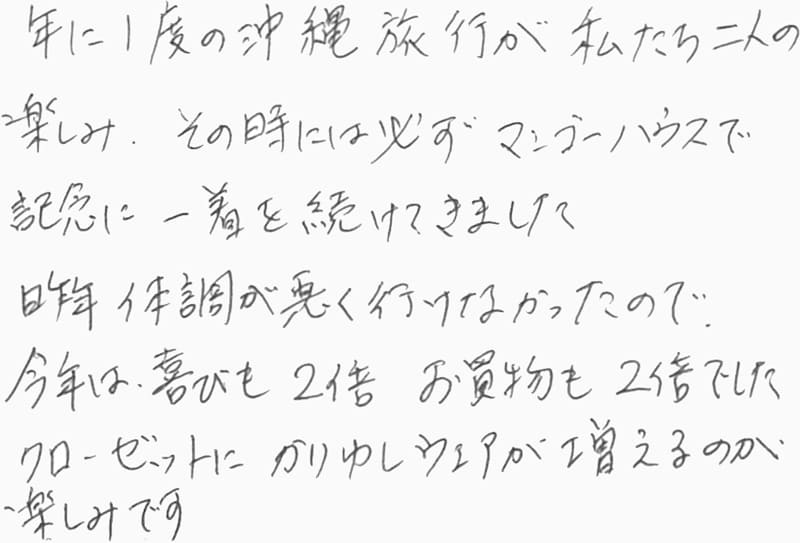 年に1度の沖縄旅行が私たち二人の
楽しみ. その時には必ずマンゴーハウスで
記念に一着を続けてきました
昨年体調が悪く行けなかったので.
今年は、喜びも2倍 お買物も2倍でした
クローゼットにかりゆしウェアが増えるのが
楽しみです